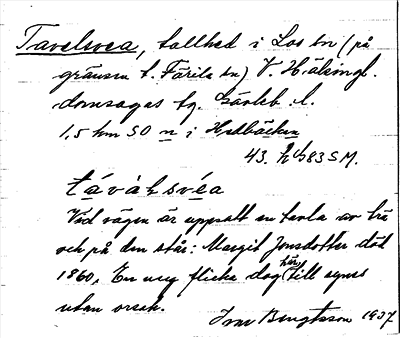 Tavelsvea, tallhed i Los sn (på
gränsen t. Färila sn) V. Hälsingl.
domsagas tg. Gävleb. l.
1,5 km SO n i Hedbäcken
43. h 83 SM.
távàlsvéa
Vid vägen är uppsatt en tavla av trä
och på den står: Margit Jonsdotter död
1860, En ung flicka dog här till synes
utan orsak.
Bengtsson 1937